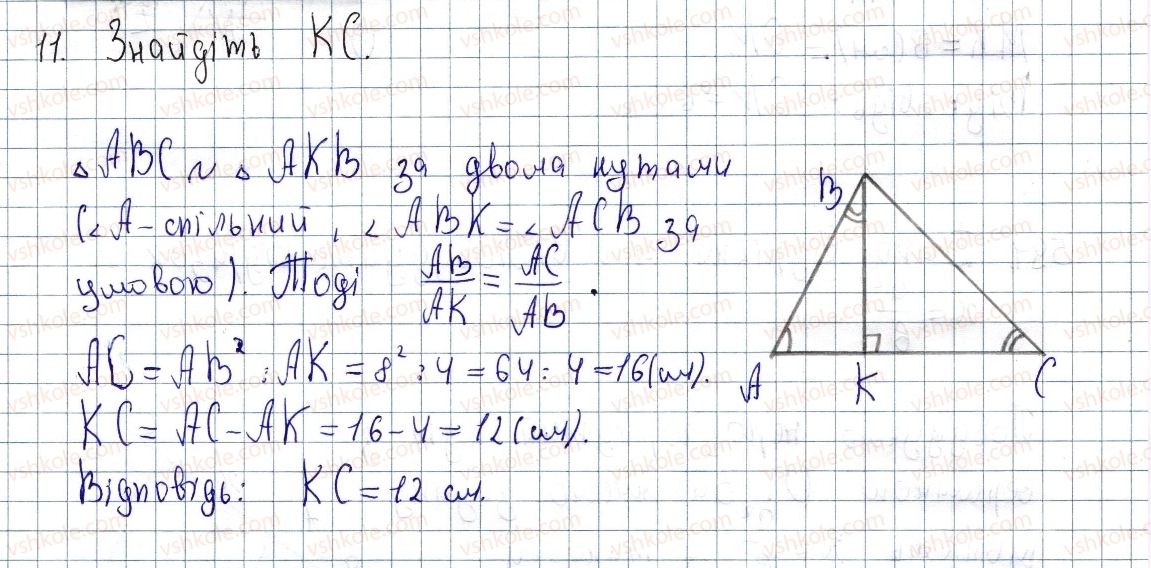 11. Знайдіть KC.
△ABC ~ △AKB за двома кутами
(∠A - спільний, ∠ABK = ∠ACB за
умовою). Тоді AB/AK = AC/AB.
AC = AB² : AK = 8² : 4 = 64 : 4 = 16 (см).
KC = AC - AK = 16 - 4 = 12 (см).
Відповідь: KC = 12 см.
B
A K C